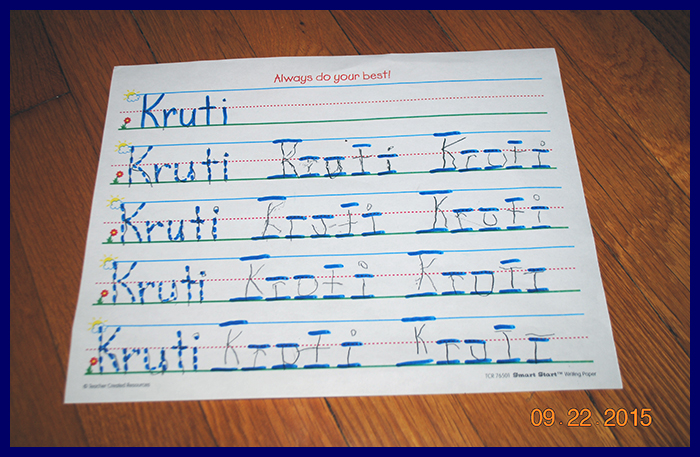 Always do your best!
Kruti
Kruti Kruti Kruti
Kruti Kruti Kruti
Kruti Kruti Kruti
Kruti Kruti Kruti
© Teacher Created Resources TCR 76501 Smart Start™ Writing Paper
09.22.2015